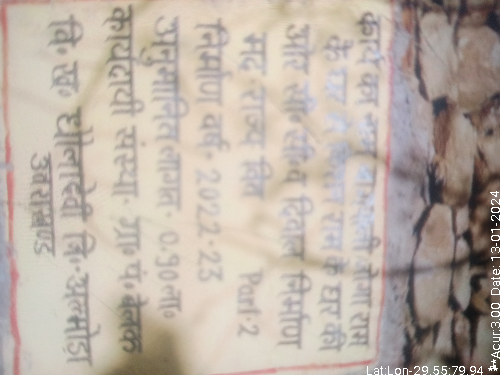 कार्य का नाम
के घर से राम के घर की
और सी० सी० व दिवाल निर्माण
मद- राज्य वित्त Part-2
निर्माण वर्ष- 2022-23
अनुमानित लागत- 0.90 ला०
कार्यदायी संस्था- ग्रा० पं० बलाक
वि० ख० धौलादेवी जि०-अल्मोड़ा
उत्तराखण्ड
Lat:Lon-29.55:79.94
**Acur:3.00 Date: 13-01-2024